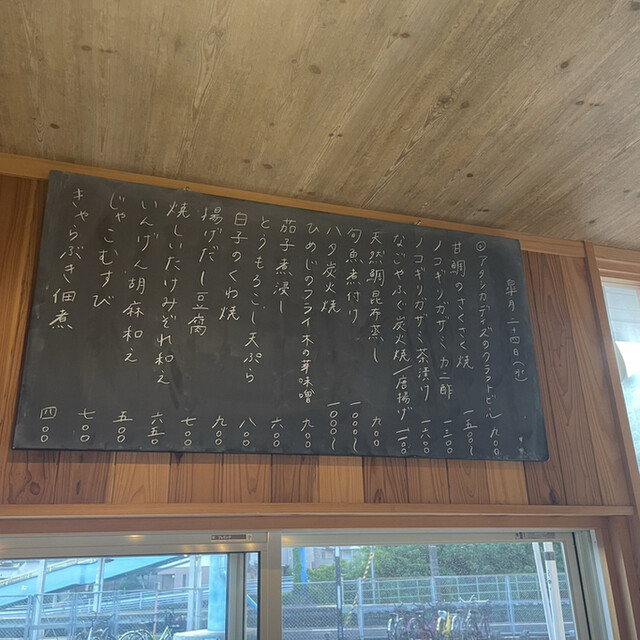 皐月 二十四日(水)
アメンカディーズのクラフトビール 九〇〇
甘鯛のさくさく焼 一五〇〇〜
ノコギリガザミ カニ酢 一三〇〇
ノコギリガザミ 茶漬け 一六〇〇
なごやふぐ炭火焼/唐揚げ 一一〇〇
天然鯛昆布蒸し 九〇〇
旬魚煮付け 一〇〇〇〜
ハタ炭火焼 一〇〇〇〜
ひめじのフライ 木の芽味噌 九〇〇
茄子煮浸し 六〇〇
とうもろこし天ぷら 八〇〇
白子のくわ焼 九〇〇
揚げだし豆腐 七〇〇
焼しいたけみぞれ和え 六五〇
いんげん胡麻和え 五〇〇
じゃこむすび 七〇〇
きゃらぶき佃煮 四〇〇